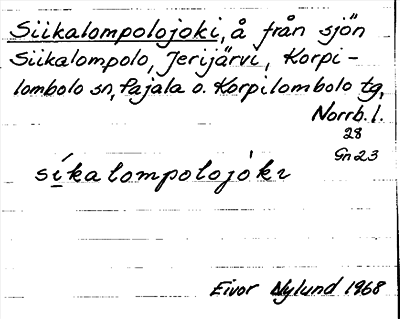 Siikalompolojoki, å från sjön
Siikalompolo, Jerijärvi, Korpi-
lombolo sn, Pajala o. Korpilombolo tg,
Norrb. l.
28
Gn 23
síkalompolojòkɩ
Eivor Nylund 1968